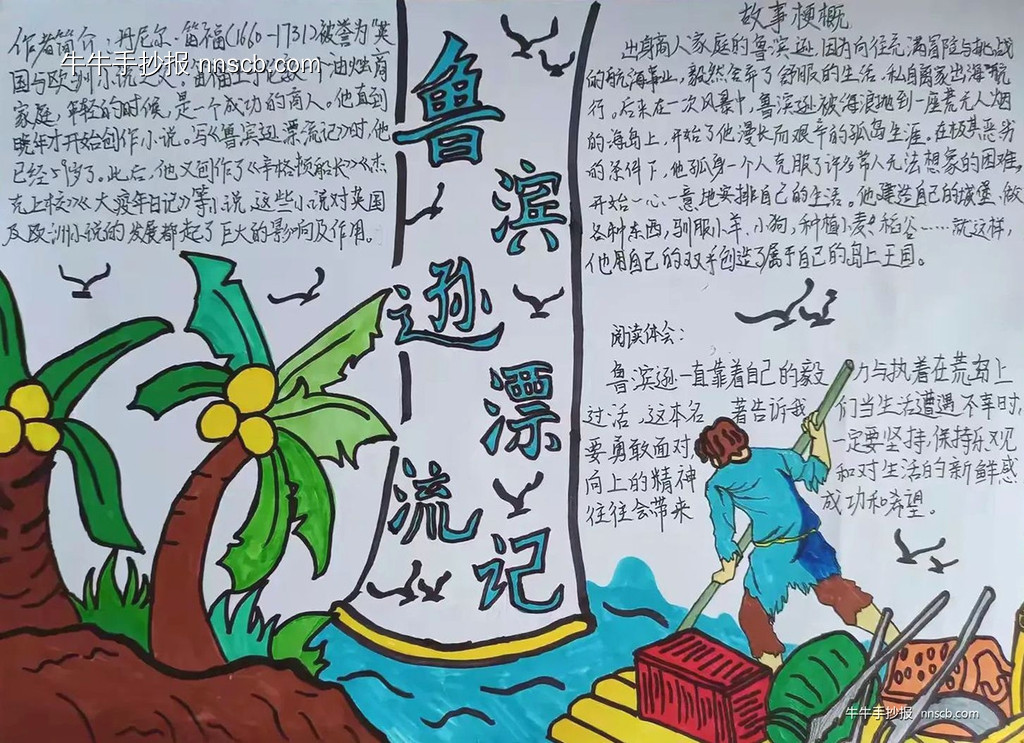 作者简介：丹尼尔·笛福(1660-1731)被誉为"英
国与欧洲小说之父"
家庭，年轻的时候，是一个成功的商人。他直到
晚年才开始创作小说。写《鲁滨逊漂流记》时，他
已经59岁了。此后，他又创作了《辛格顿船长》《杰
克上校》《大疫年日记》等小说，这些小说对英国
及欧洲小说的发展都起了巨大的影响及作用。
牛牛手抄报 nnscb.com
鲁滨逊漂流记
故事梗概
出身商人家庭的鲁滨逊，因为向往充满冒险与挑战
的航海事业，毅然舍弃了舒服的生活，私自离家出海航
行。后来在一次风暴中，鲁滨逊被海浪抛到一座荒无人烟
的海岛上，开始了他漫长而艰辛的孤岛生涯。在极其恶劣
的条件下，他孤身一个人克服了许多常人无法想象的困难，
开始一心一意地安排自己的生活。他建造自己的城堡，做
各种东西，驯服小羊、小狗，种植小麦、稻谷……就这样，
他用自己的双手创造了属于自己的岛上王国。
阅读体会：
鲁滨逊一直靠着自己的毅力与执着在荒岛上
过活，这本名著告诉我们当生活遭遇不幸时，
要勇敢面对一定要坚持，保持乐观
向上的精神和对生活的新鲜感
往往会带来成功和希望。
牛牛手抄报 nnscb.com